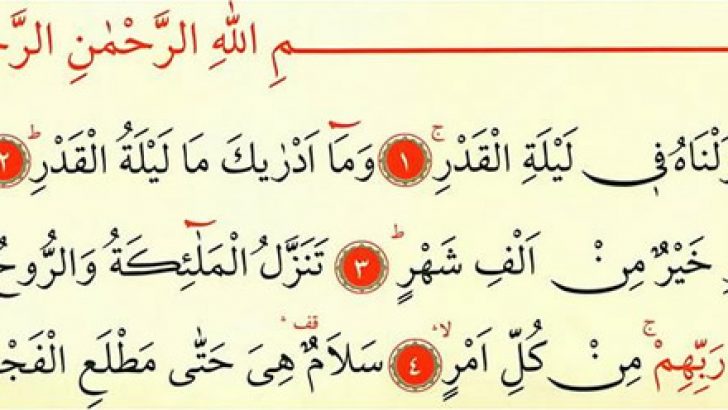 مِ اللهِ الرَّحْمٰنِ الرَّح
زَلْنَاهُ ف۪ي لَيْلَةِ الْقَدْرِۚ ﴿١﴾ وَمَٓا اَدْرٰيكَ مَا لَيْلَةُ الْقَدْرِۜ ﴿٢﴾
رِ خَيْرٌ مِنْ اَلْفِ شَهْرٍۜ ﴿٣﴾ تَنَزَّلُ الْمَلٰٓئِكَةُ وَالرُّوحُ
رَبِّهِمْۚ مِنْ كُلِّ اَمْرٍۙ ﴿٤﴾ سَلَامٌ۠ هِيَ حَتّٰى مَطْلَعِ الْفَجْ